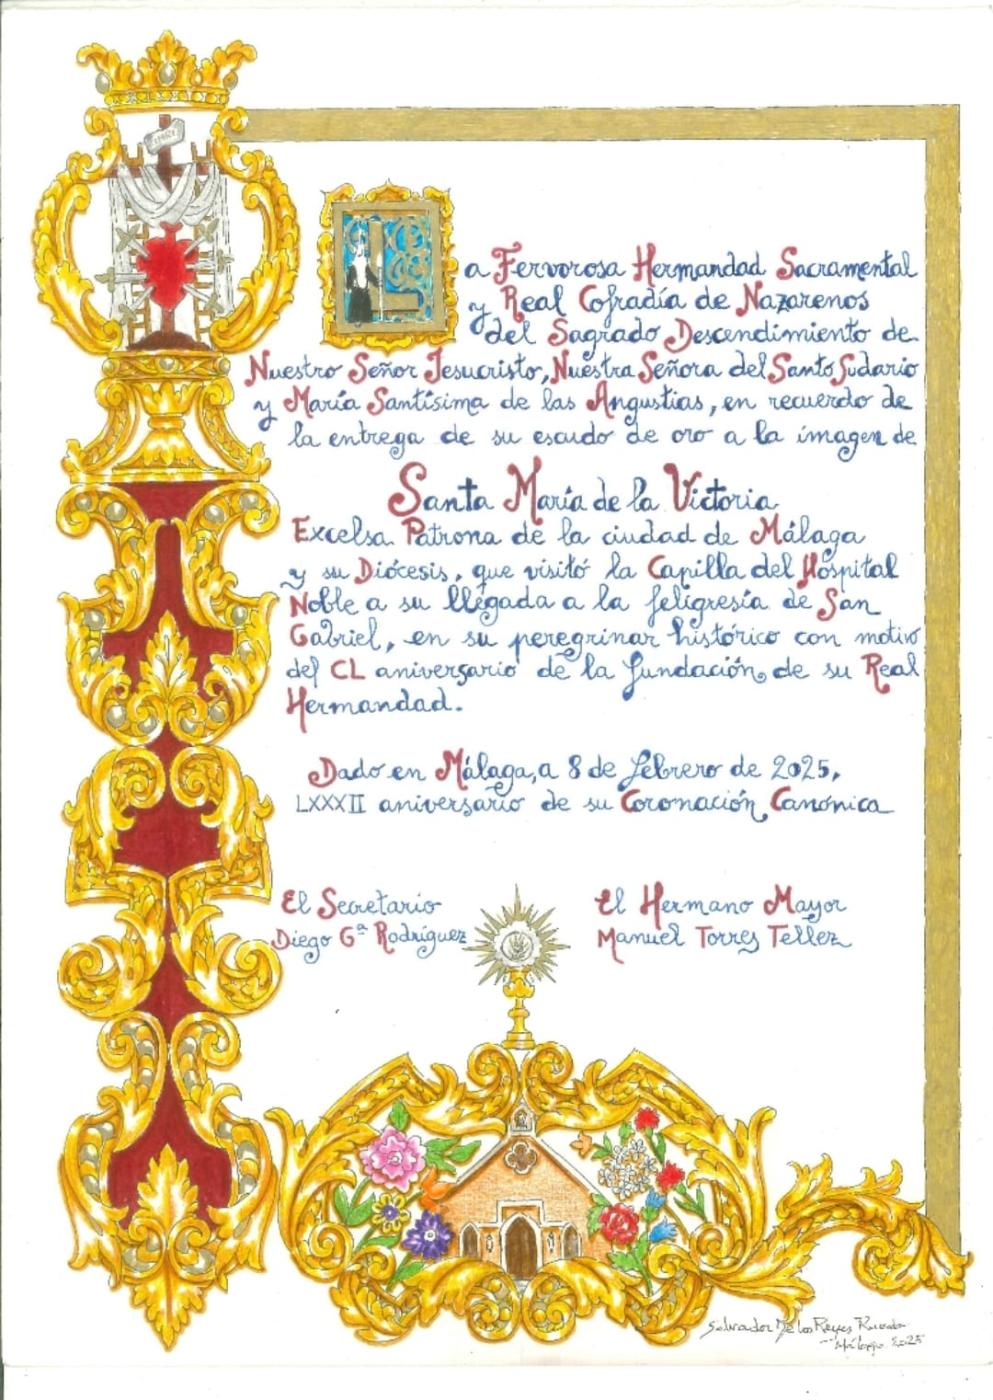 INRI
La Fervorosa Hermandad Sacramental
y Real Cofradía de Nazarenos
del Sagrado Descendimiento de
Nuestro Señor Jesucristo, Nuestra Señora del Santo Sudario
y María Santísima de las Angustias, en recuerdo de
la entrega de su escudo de oro a la imagen de
Santa María de la Victoria
Excelsa Patrona de la ciudad de Málaga
y su Diócesis, que visitó la Capilla del Hospital
Noble a su llegada a la feligresía de San
Gabriel, en su peregrinar histórico con motivo
del CL aniversario de la fundación de su Real
Hermandad.
Dado en Málaga, a 8 de febrero de 2025,
LXXXII aniversario de su Coronación Canónica
El Secretario
Diego Gª Rodríguez
El Hermano Mayor
Manuel Torres Tellez
Salvador De los Reyes Rueda
Málaga 2025